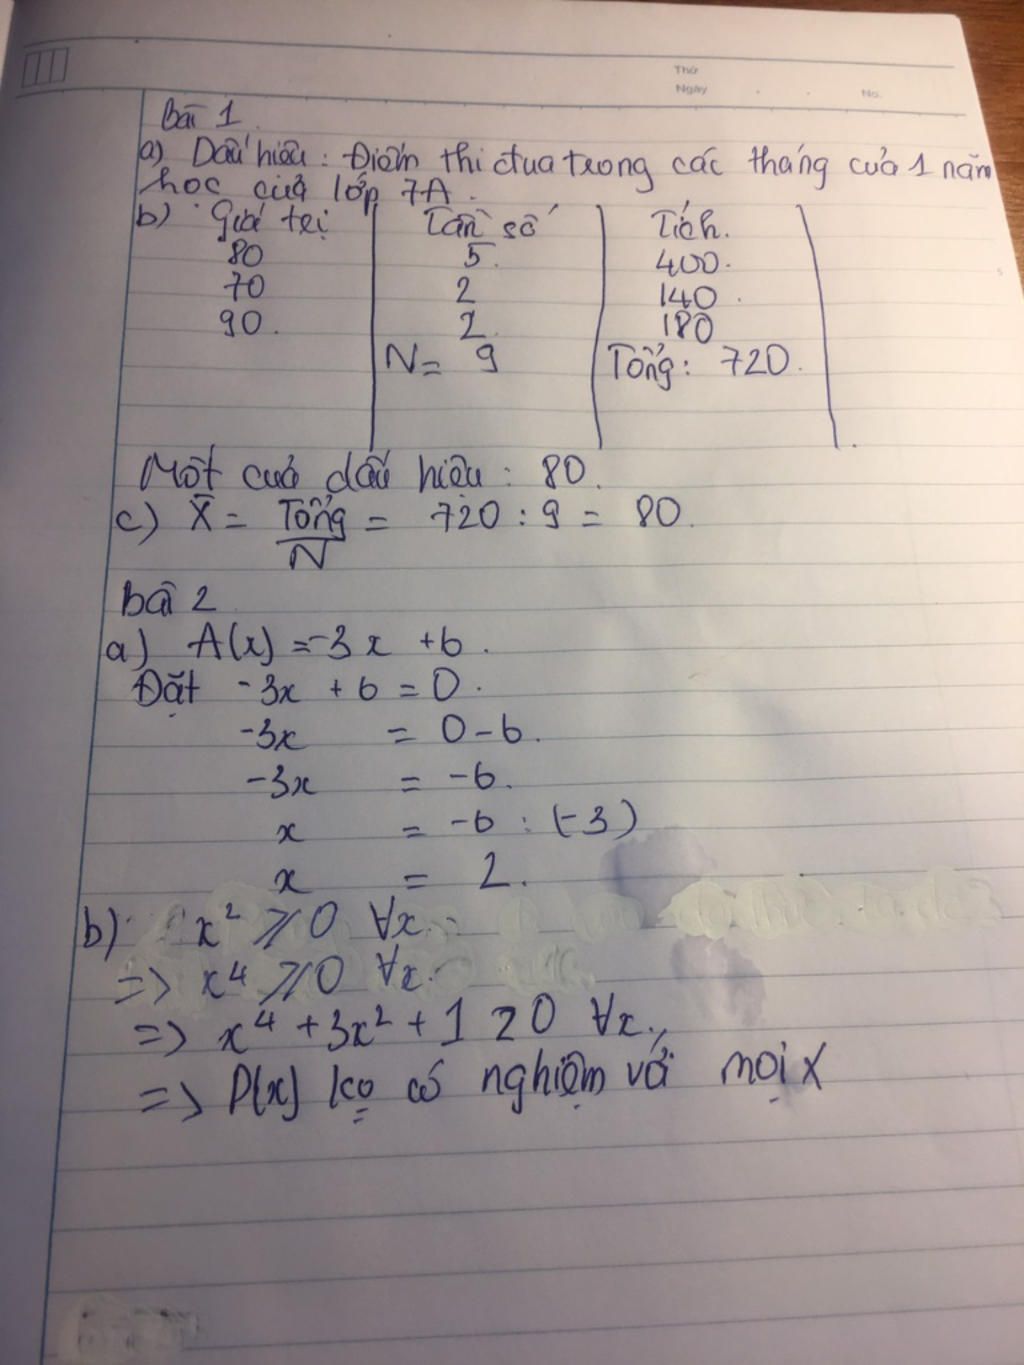 Thứ
Ngày
No.
Bài 1
a) Dấu hiệu: Điểm thi đua trong các tháng của 1 năm
học của lớp 7A.
b) Giá trị Tần số Tích.
80 5. 400.
70 2 140.
90. 2. 180
N= 9 Tổng: 720.
Mốt của dấu hiệu: 80.
c) X̄ = Tổng/N = 720 : 9 = 80.
bài 2
a) A(x) = -3x +6.
Đặt -3x + 6 = 0.
-3x = 0-6.
-3x = -6.
x = -6 : (-3)
x = 2.
b) x² ⩾ 0 ∀x.
=> x⁴ ⩾ 0 ∀x.
=> x⁴ + 3x² + 1 ≥ 0 ∀x.
=> P(x) ko có nghiệm với mọi x